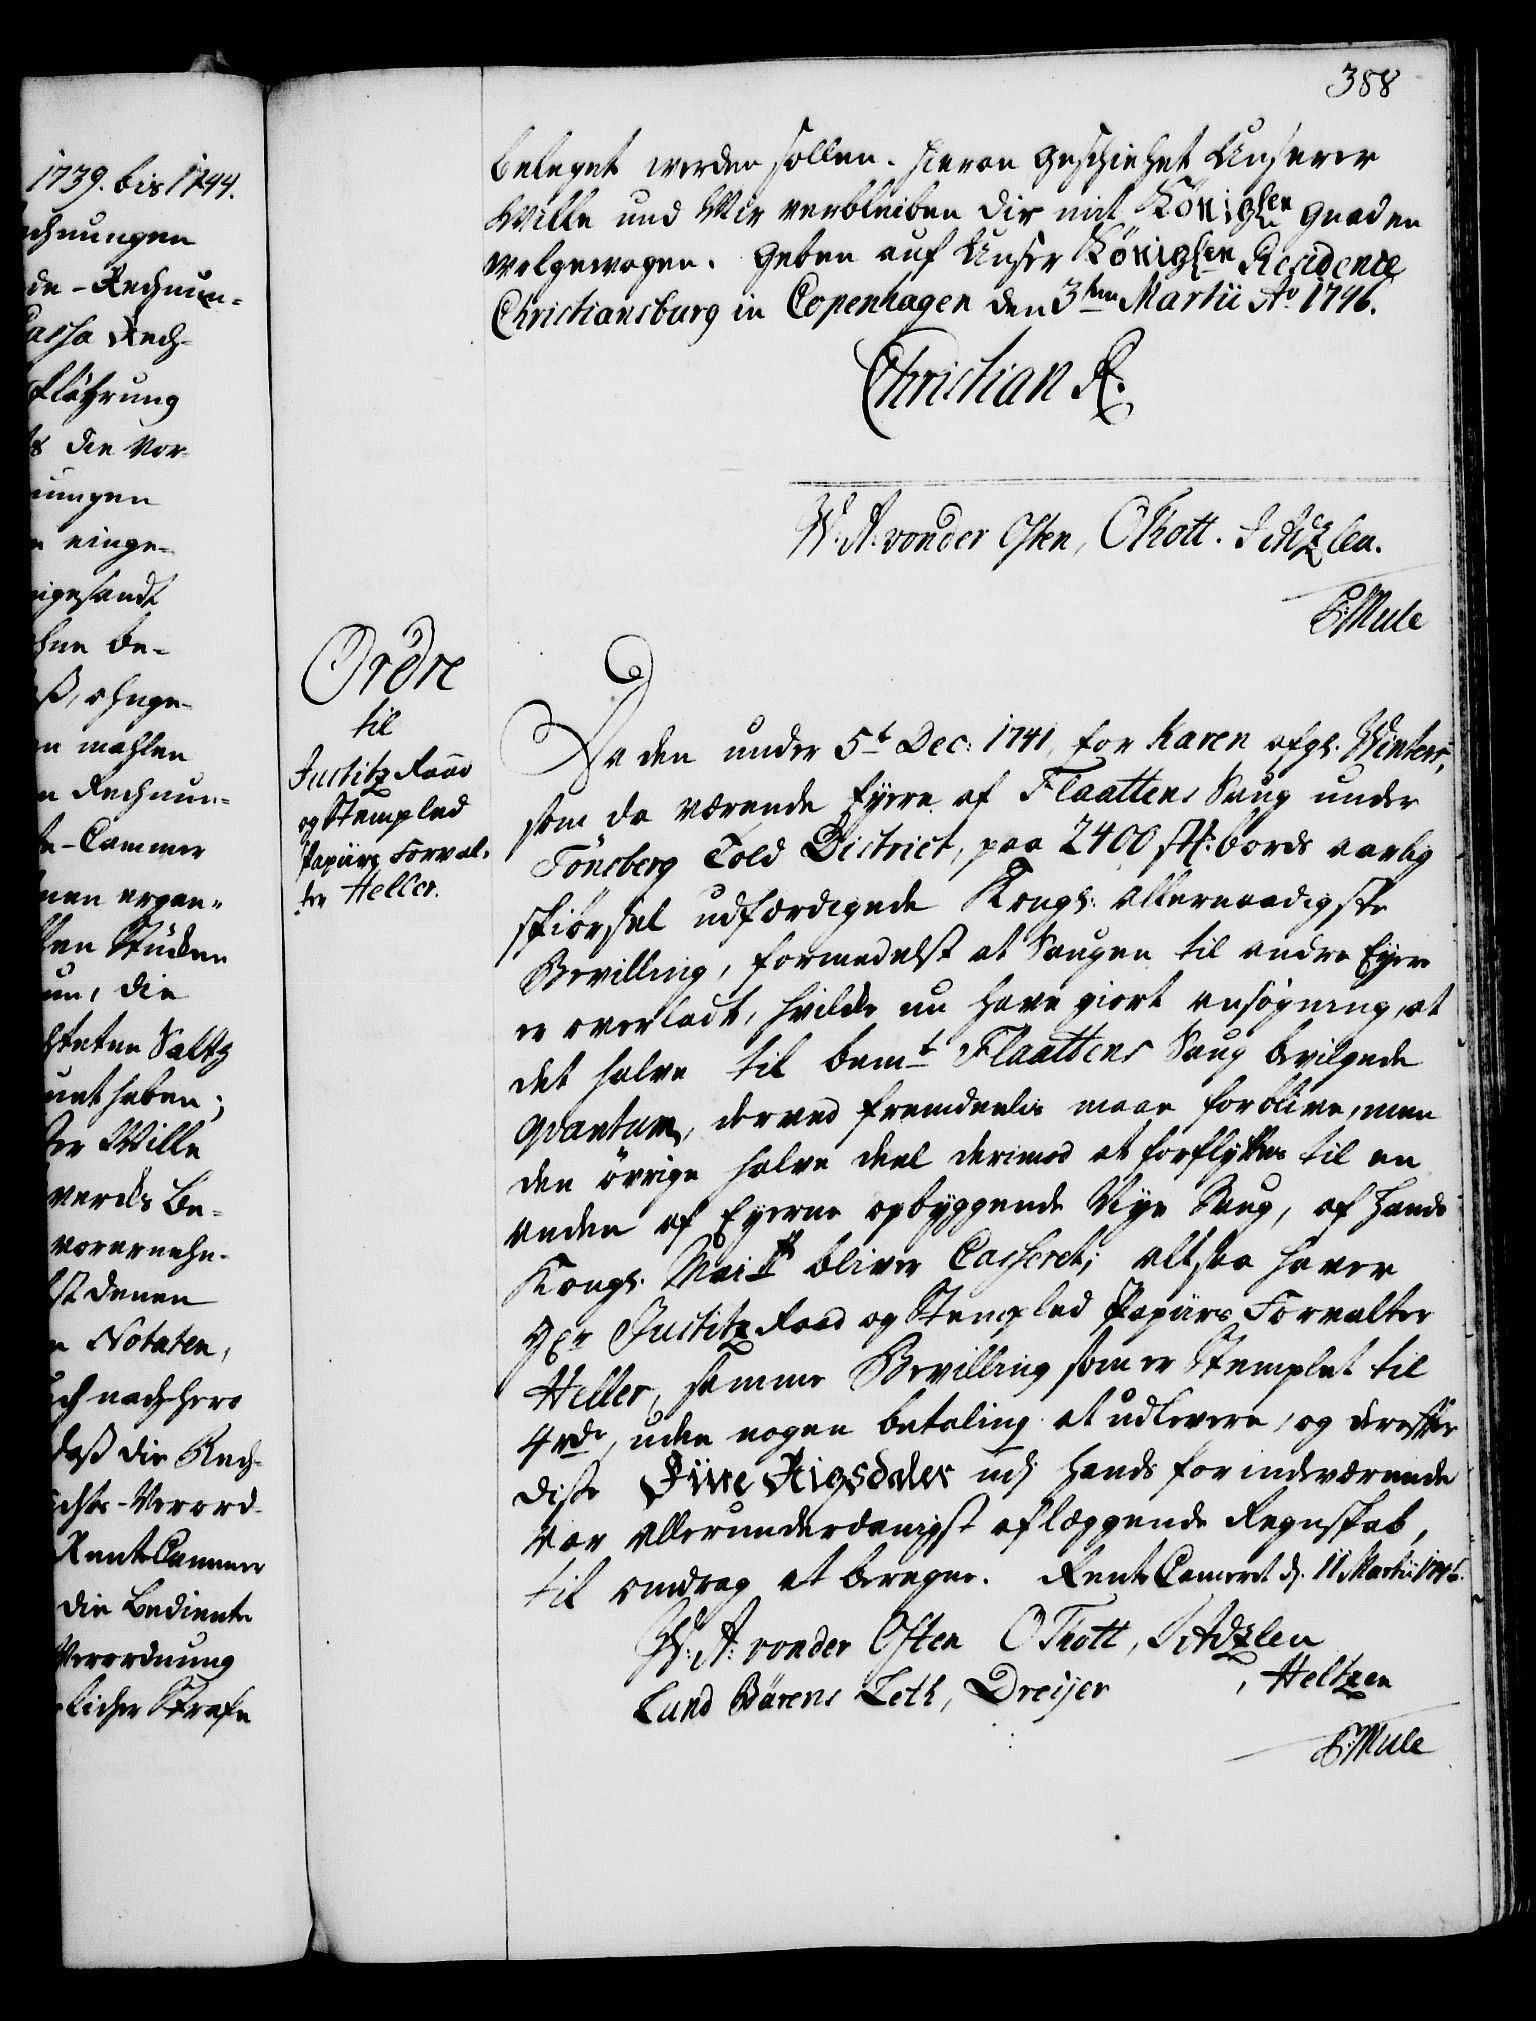 388
1739. bis 1744.
chnungen
de-Rechnun-
Cassa Rech-
klährung
die Vor-
nungen
einge-
ngesandt
hne be-
ß, ohnge-
mahlen
Rechnun-
te-Cammer
nen ergan-
len Stücken
un, die
hteten Saltz
unt haben;
ter Wille
vercks Be-
vorerneh-
st denen
n Notaten,
ch nachhero
daß die Rech-
chts-Verord-
RenteCammer
die Bediente
Verordnung
licher Strafe
beleget werden sollen. Hieran geschiehet Unserer
Wille und Wir verbleiben dir mit Königlen Gnaden
wolgewogen. Geben auf Unser Königlen Residence
Christiansburg in Copenhagen den 3ten Martii Ao 1746.
Christian R.
W. A: von der Osten, O Thott. S Adzlen.
E: Mule
Ordre
til
Justitz Raad
og Stempled
Papiirs Forval-
ter Heller.
Da den under 5t Dec: 1741, for Karen afgl. Winters,
som da værende Eyere af Flaattens Saug under
Tönsberg Told District, paa 2400 st: bords aarlig
skiörsel udfærdigede Kongl: allernaadigste
Bevilling, formedelst at Saugen til andre Eyere
er overladt, hvilcke nu have giort ansögning, at
det halve til bemt Flaattens Saug bevilgede
qvantum, derved fremdeelis maae forblive, men
den övrige halve deel derimod at forflyttes til en
anden af Eyerne opbyggende Nye Saug, af Hands
Kongl. Maitt bliver Casseret; altsaa haver
Hr Justitz Raad og Stempled Papiirs Forvalter
Heller, samme Bevilling som er Stemplet til
4 rdr, uden nogen betaling at udlevere, og derefter
disse Fiire Rigsdaler udj hands for indeværende
Aar allerunderdanigst aflæggende Regnskab,
til omdrag at beregne. Rente Cameret d. 11 Martii 1746.
W: A: von der Osten O Thott, S Adzlen
Lund Bärens Leth, Dreÿer , Heltzen
E: Mule